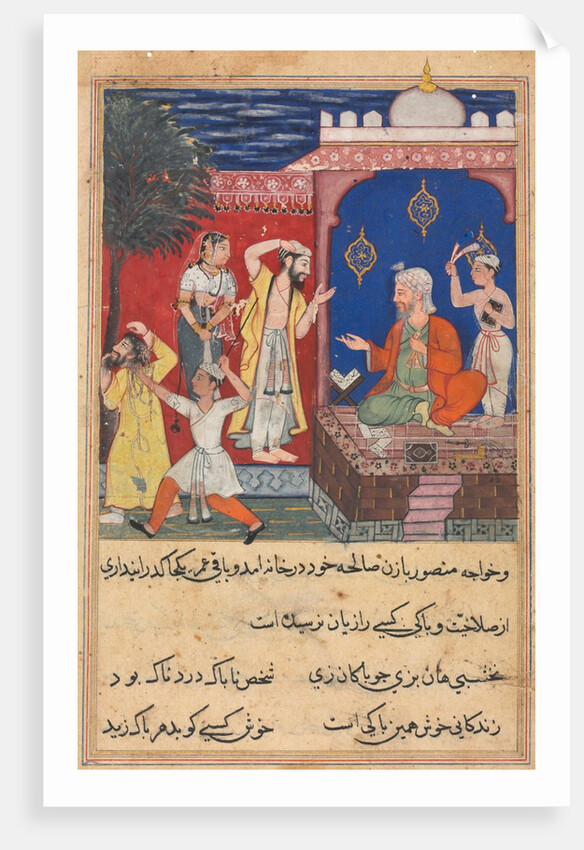 و خواجه منصور بازن صالحه خود در خانه امد و باقی عمر یکجا کدرانیداری
از صلاحیّت و پاکی کسیے را زیان نرسیده است
نخشبی هان بزی جو پاکان زی شخص ناپاک دردناک بود
زندکانی خوش همین پاکی است خوش کسیے کو بدهر پاک زید